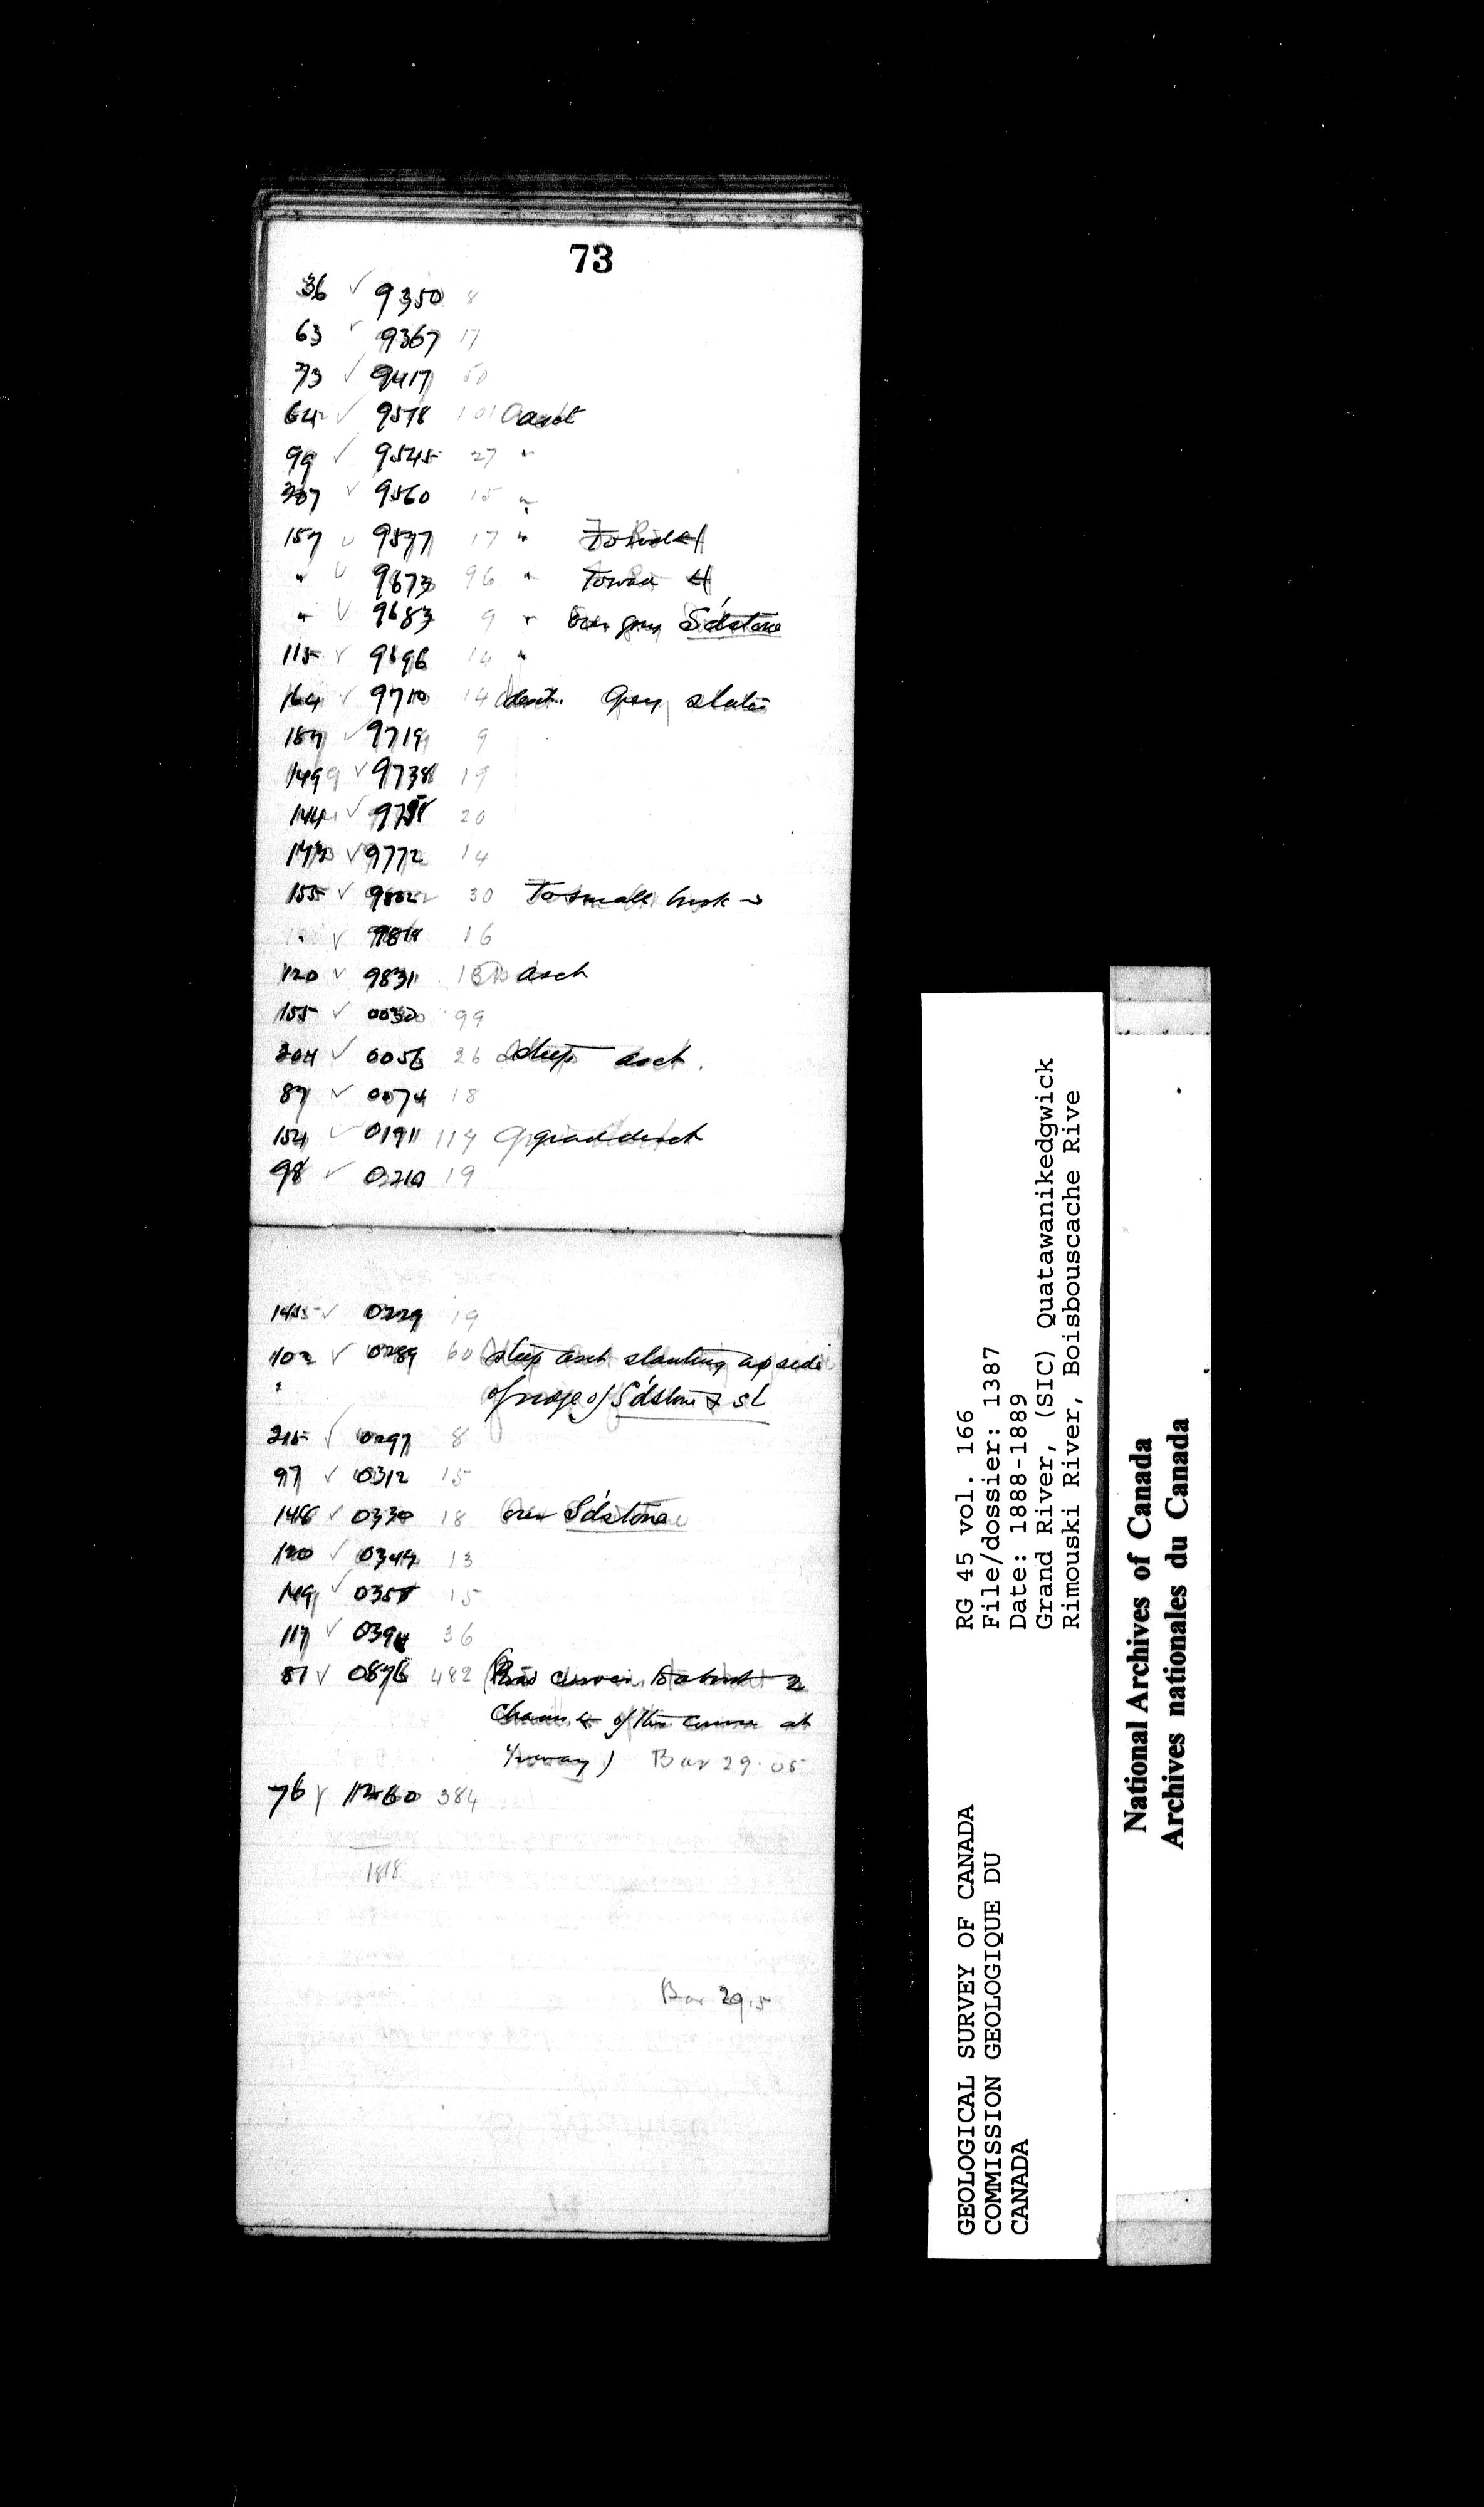 73
36 ✓ 9350 8
63 ✓ 9367 17
73 ✓ 9417 50
64 ✓ 9518 101 asct
99 ✓ 9545 27 "
207 ✓ 9560 15 "
157 ✓ 9577 17 "
" ✓ 9673 96 "
" ✓ 9683 9 " over grey S'dstone
115 ✓ 9696 14 "
164 ✓ 9710 14 desct. Grey slates
187 ✓ 9719 9
149 ✓ 9738 19
144 ✓ 9758 20
173 ✓ 9772 14
155 ✓ 9802 30 To small brook →
" ✓ 9818 16
120 ✓ 9831 13 asct
155 ✓ 0030 99
204 ✓ 0056 26 steep asct.
87 ✓ 0074 18
154 ✓ 0191 117 grad desct
98 ✓ 0210 19
145 ✓ 0229 19
102 ✓ 0289 60 steep asct slanting up side
of ridge of S'dstone & sl
215 ✓ 0297 8
97 ✓ 0312 15
148 ✓ 0330 18 over S'dstone
120 ✓ 0343 13
149 ✓ 0358 15
117 ✓ 0394 36
81 ✓ 0876 482 (This curves to about 2
chains of this course at
½ way) Bar 29.05
76 ✓ 1260 384
1818
Bar 29.5
GEOLOGICAL SURVEY OF CANADA
COMMISSION GEOLOGIQUE DU
CANADA
RG 45 vol. 166
File/dossier: 1387
Date: 1888-1889
Grand River, (SIC) Quatawanikedgwick
Rimouski River, Boisbouscache Rive
National Archives of Canada
Archives nationales du Canada